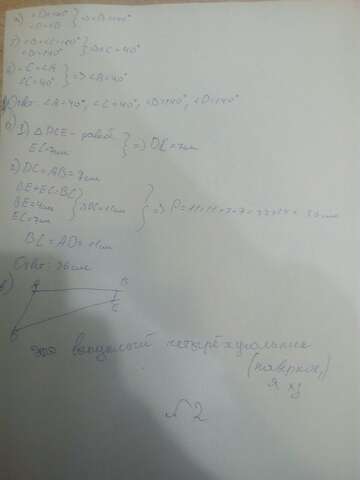 ∠D=140° } => ∠B=140°
∠D=∠B
∠B+∠C=180° } ∠C=40°
∠B=140°
∠C=∠A } => ∠A=40°
∠C=40°
Ответ: ∠A=40°, ∠C=40°, ∠B=140°, ∠D=140°
1) △DCE - равоб } => DC=7см
EC=7см
2) DC=AB=7см
BE+EC=BC
BE=4см } => BC=11см } => P=11+11+7+7=
EC=7см
BC=AD=11см
Ответ: 36см
в)
A B
C
D
это выпуклый четырёхугольник
(наверное,
я хз
№2